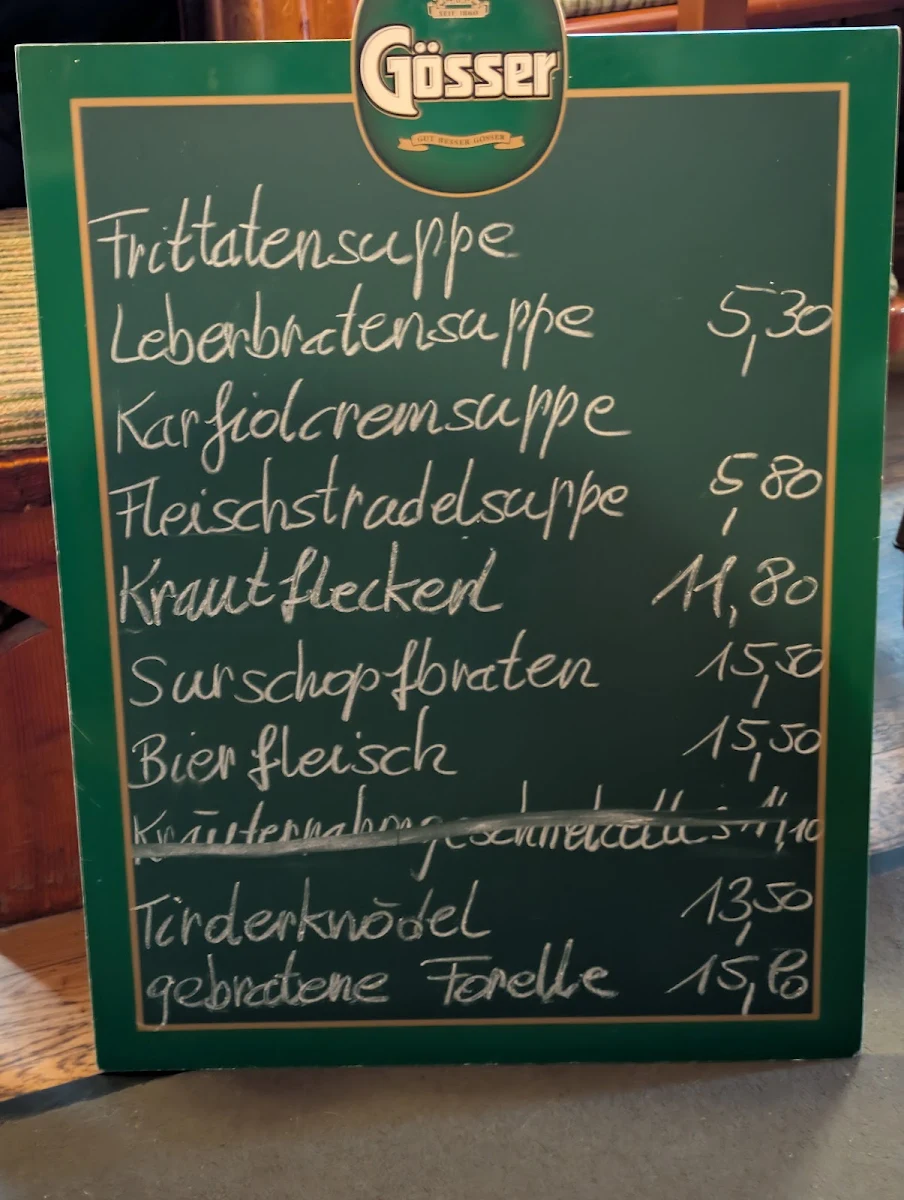 Gösser
GUT BESSER GÖSSER
Frittatensuppe
Leberbratensuppe 5,30
Karfiolcremsuppe
Fleischstradelsuppe 5,80
Krautfleckerl 11,80
Surschopfbraten 15,50
Bierfleisch 15,50
Kräuterrahmgeschnetzeltes 11,10
Tirderknödel 13,50
gebratene Forelle 15,